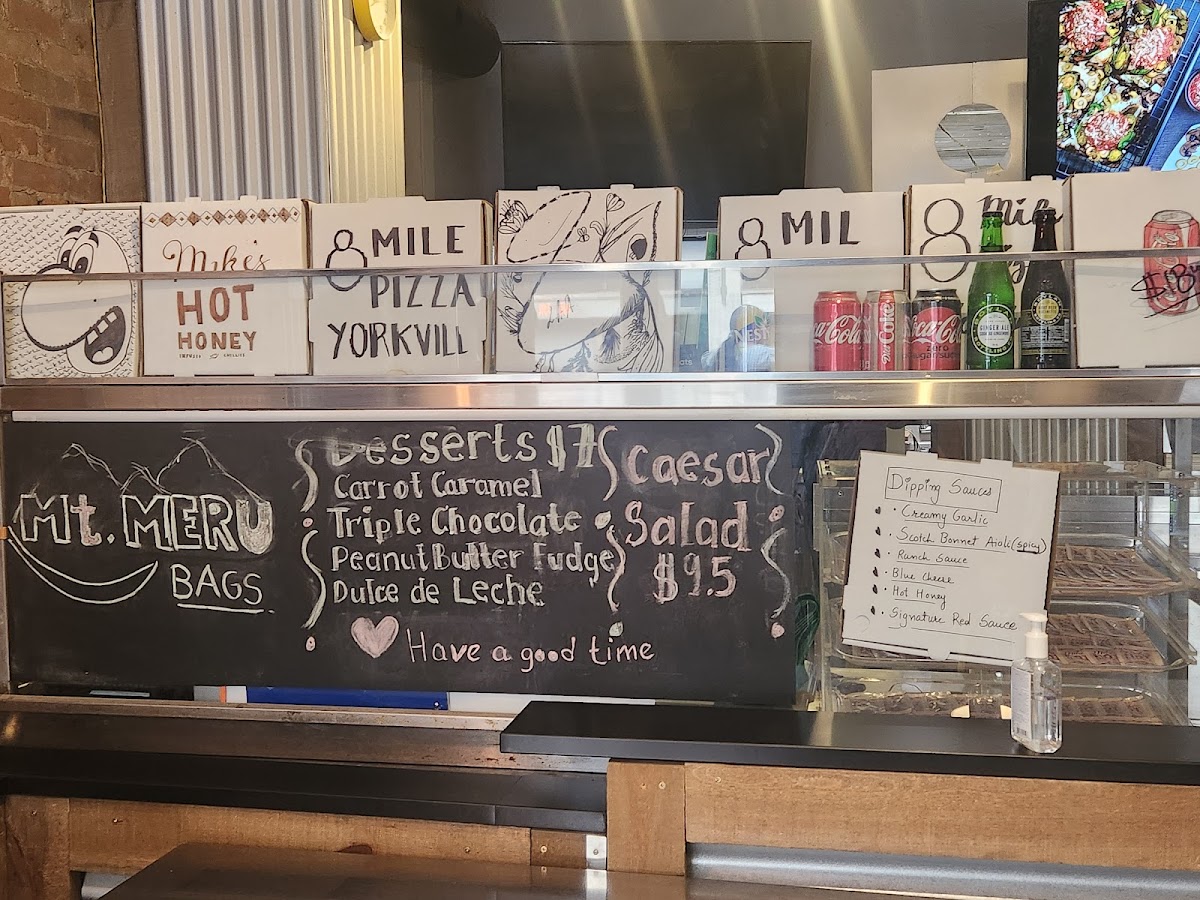 Mike's
HOT
HONEY
8 MILE
PIZZA
YORKVILL
8 MIL
8 Mile
Coca-Cola
Diet Coke
Coca-Cola
zero
GINGER ALE
Mt. MERU
BAGS
Desserts $7
Carrot Caramel
Triple Chocolate
Peanut Butter Fudge
Dulce de Leche
Have a good time
Caesar
Salad
$9.5
Dipping Sauces
• Creamy Garlic
• Scotch Bonnet Aioli (spicy)
• Ranch Sauce
• Blue Cheese
• Hot Honey
• Signature Red Sauce